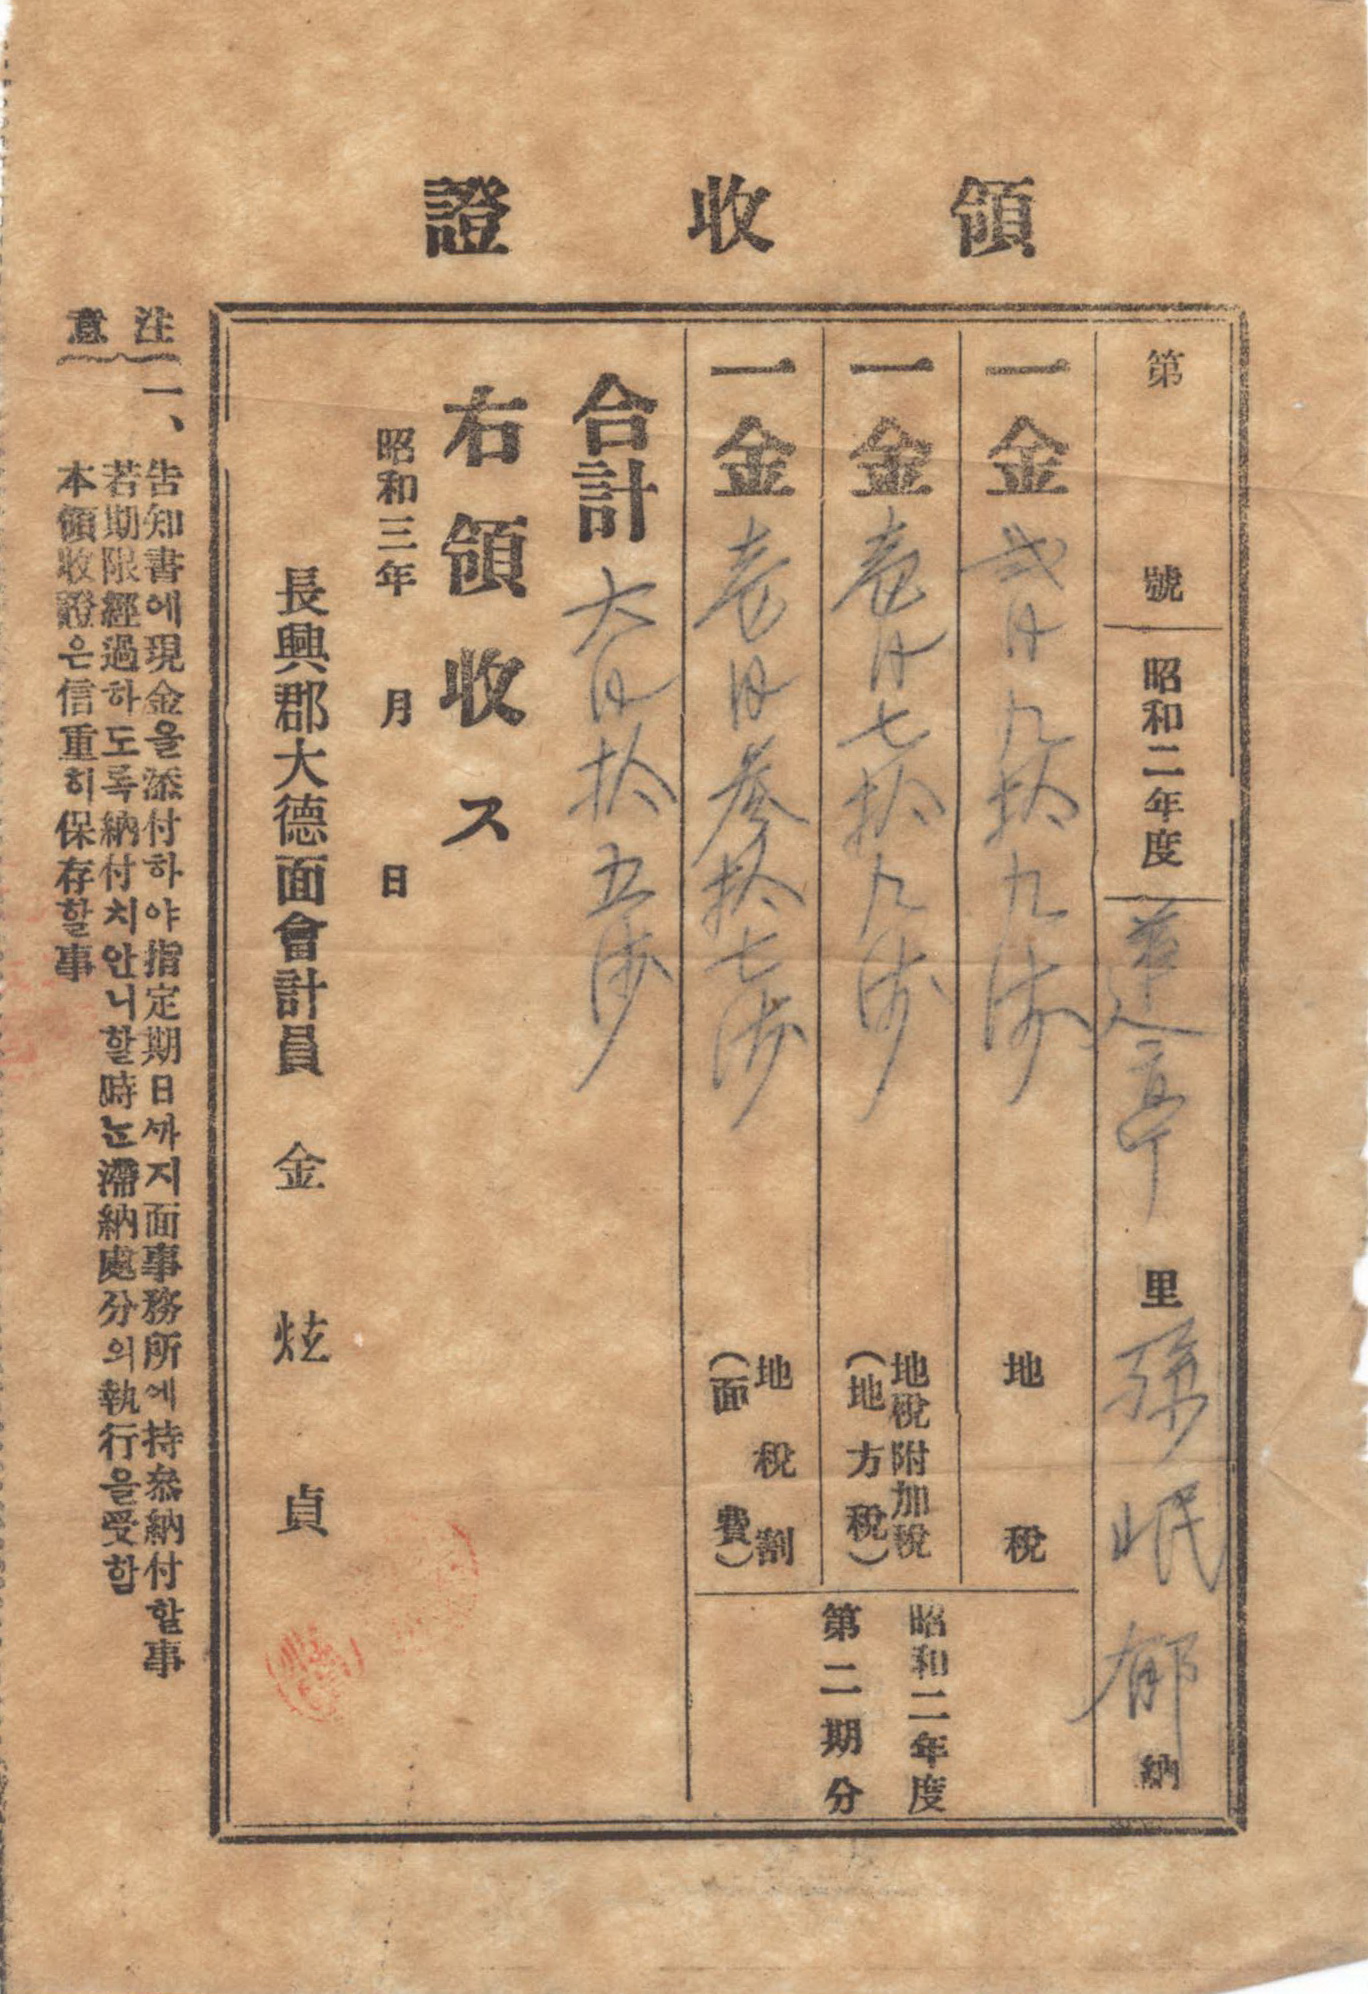 領收證
第　號　昭和二年度　蓮亭里　孫岷郁　納
一金 貳円九拾九戔　地稅
一金 壹円七拾九戔　地稅附加稅
(地方稅)
一金 壹円參拾七戔　地稅割
(面費)
昭和二年度
第二期分
合計 六円拾五戔
右領收ス
昭和三年　月　日
長興郡大德面會計員　金炫貞
注意
一、告知書에現金을添付하야指定期日싸지面事務所에持參納付할事
若期限經過하도록納付치안니할時는滯納處分의執行을受함
本領收證은信重히保存할事